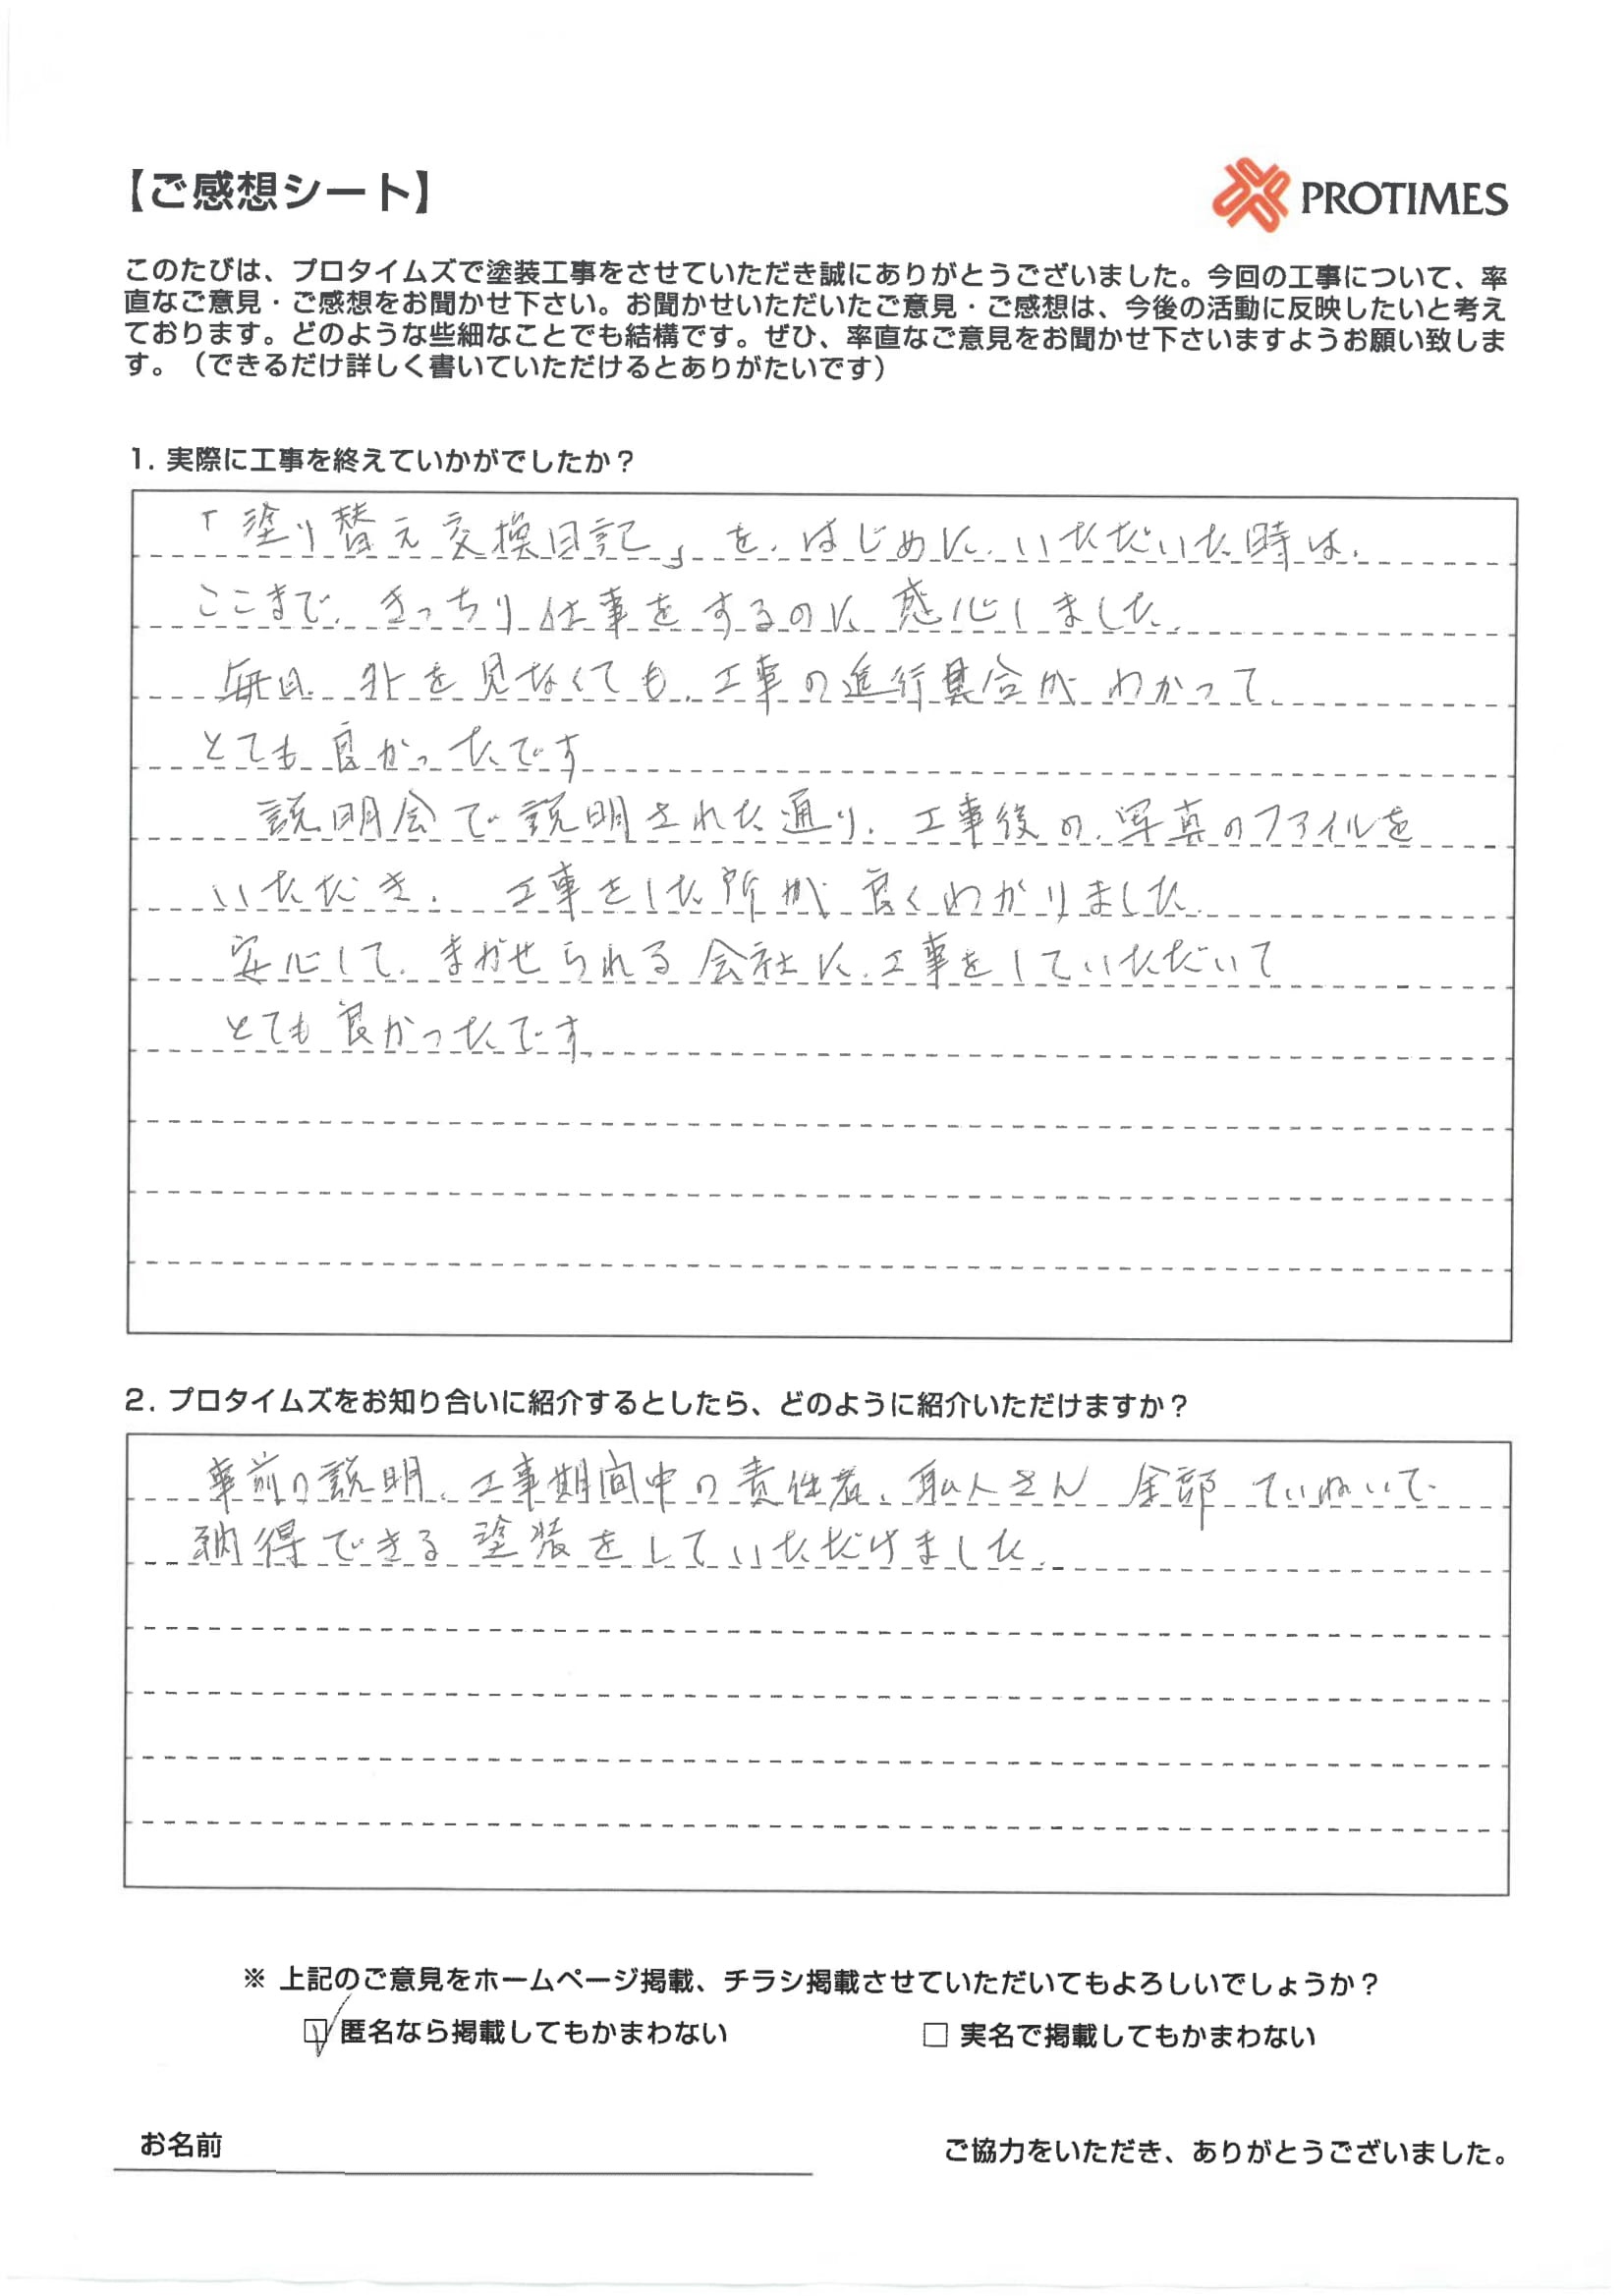 【ご感想シート】
PROTIMES
このたびは、プロタイムズで塗装工事をさせていただき誠にありがとうございました。今回の工事について、率
直なご意見・ご感想をお聞かせ下さい。お聞かせいただいたご意見・ご感想は、今後の活動に反映したいと考え
ております。どのような些細なことでも結構です。ぜひ、率直なご意見をお聞かせ下さいますようお願い致しま
す。（できるだけ詳しく書いていただけるとありがたいです）
1. 実際に工事を終えていかがでしたか？
「塗り替え交換日記」を、はじめに、いただいた時は、
ここまで、きっちり仕事をするのに感心しました。
毎日、外を見なくても、工事の進行具合が わかって、
とても良かったです
説明会で説明された通り、工事後の、写真のファイルを
いただき、工事をした所が良くわかりました。
安心して、まかせられる会社に、工事をしていただいて
とても良かったです。
2. プロタイムズをお知り合いに紹介するとしたら、どのように紹介いただけますか？
事前の説明、工事期間中の責任者、職人さん 全部 ていねいで
納得できる塗装をしていただけました。
※ 上記のご意見をホームページ掲載、チラシ掲載させていただいてもよろしいでしょうか？
☑ 匿名なら掲載してもかまわない □ 実名で掲載してもかまわない
お名前 ご協力をいただき、ありがとうございました。